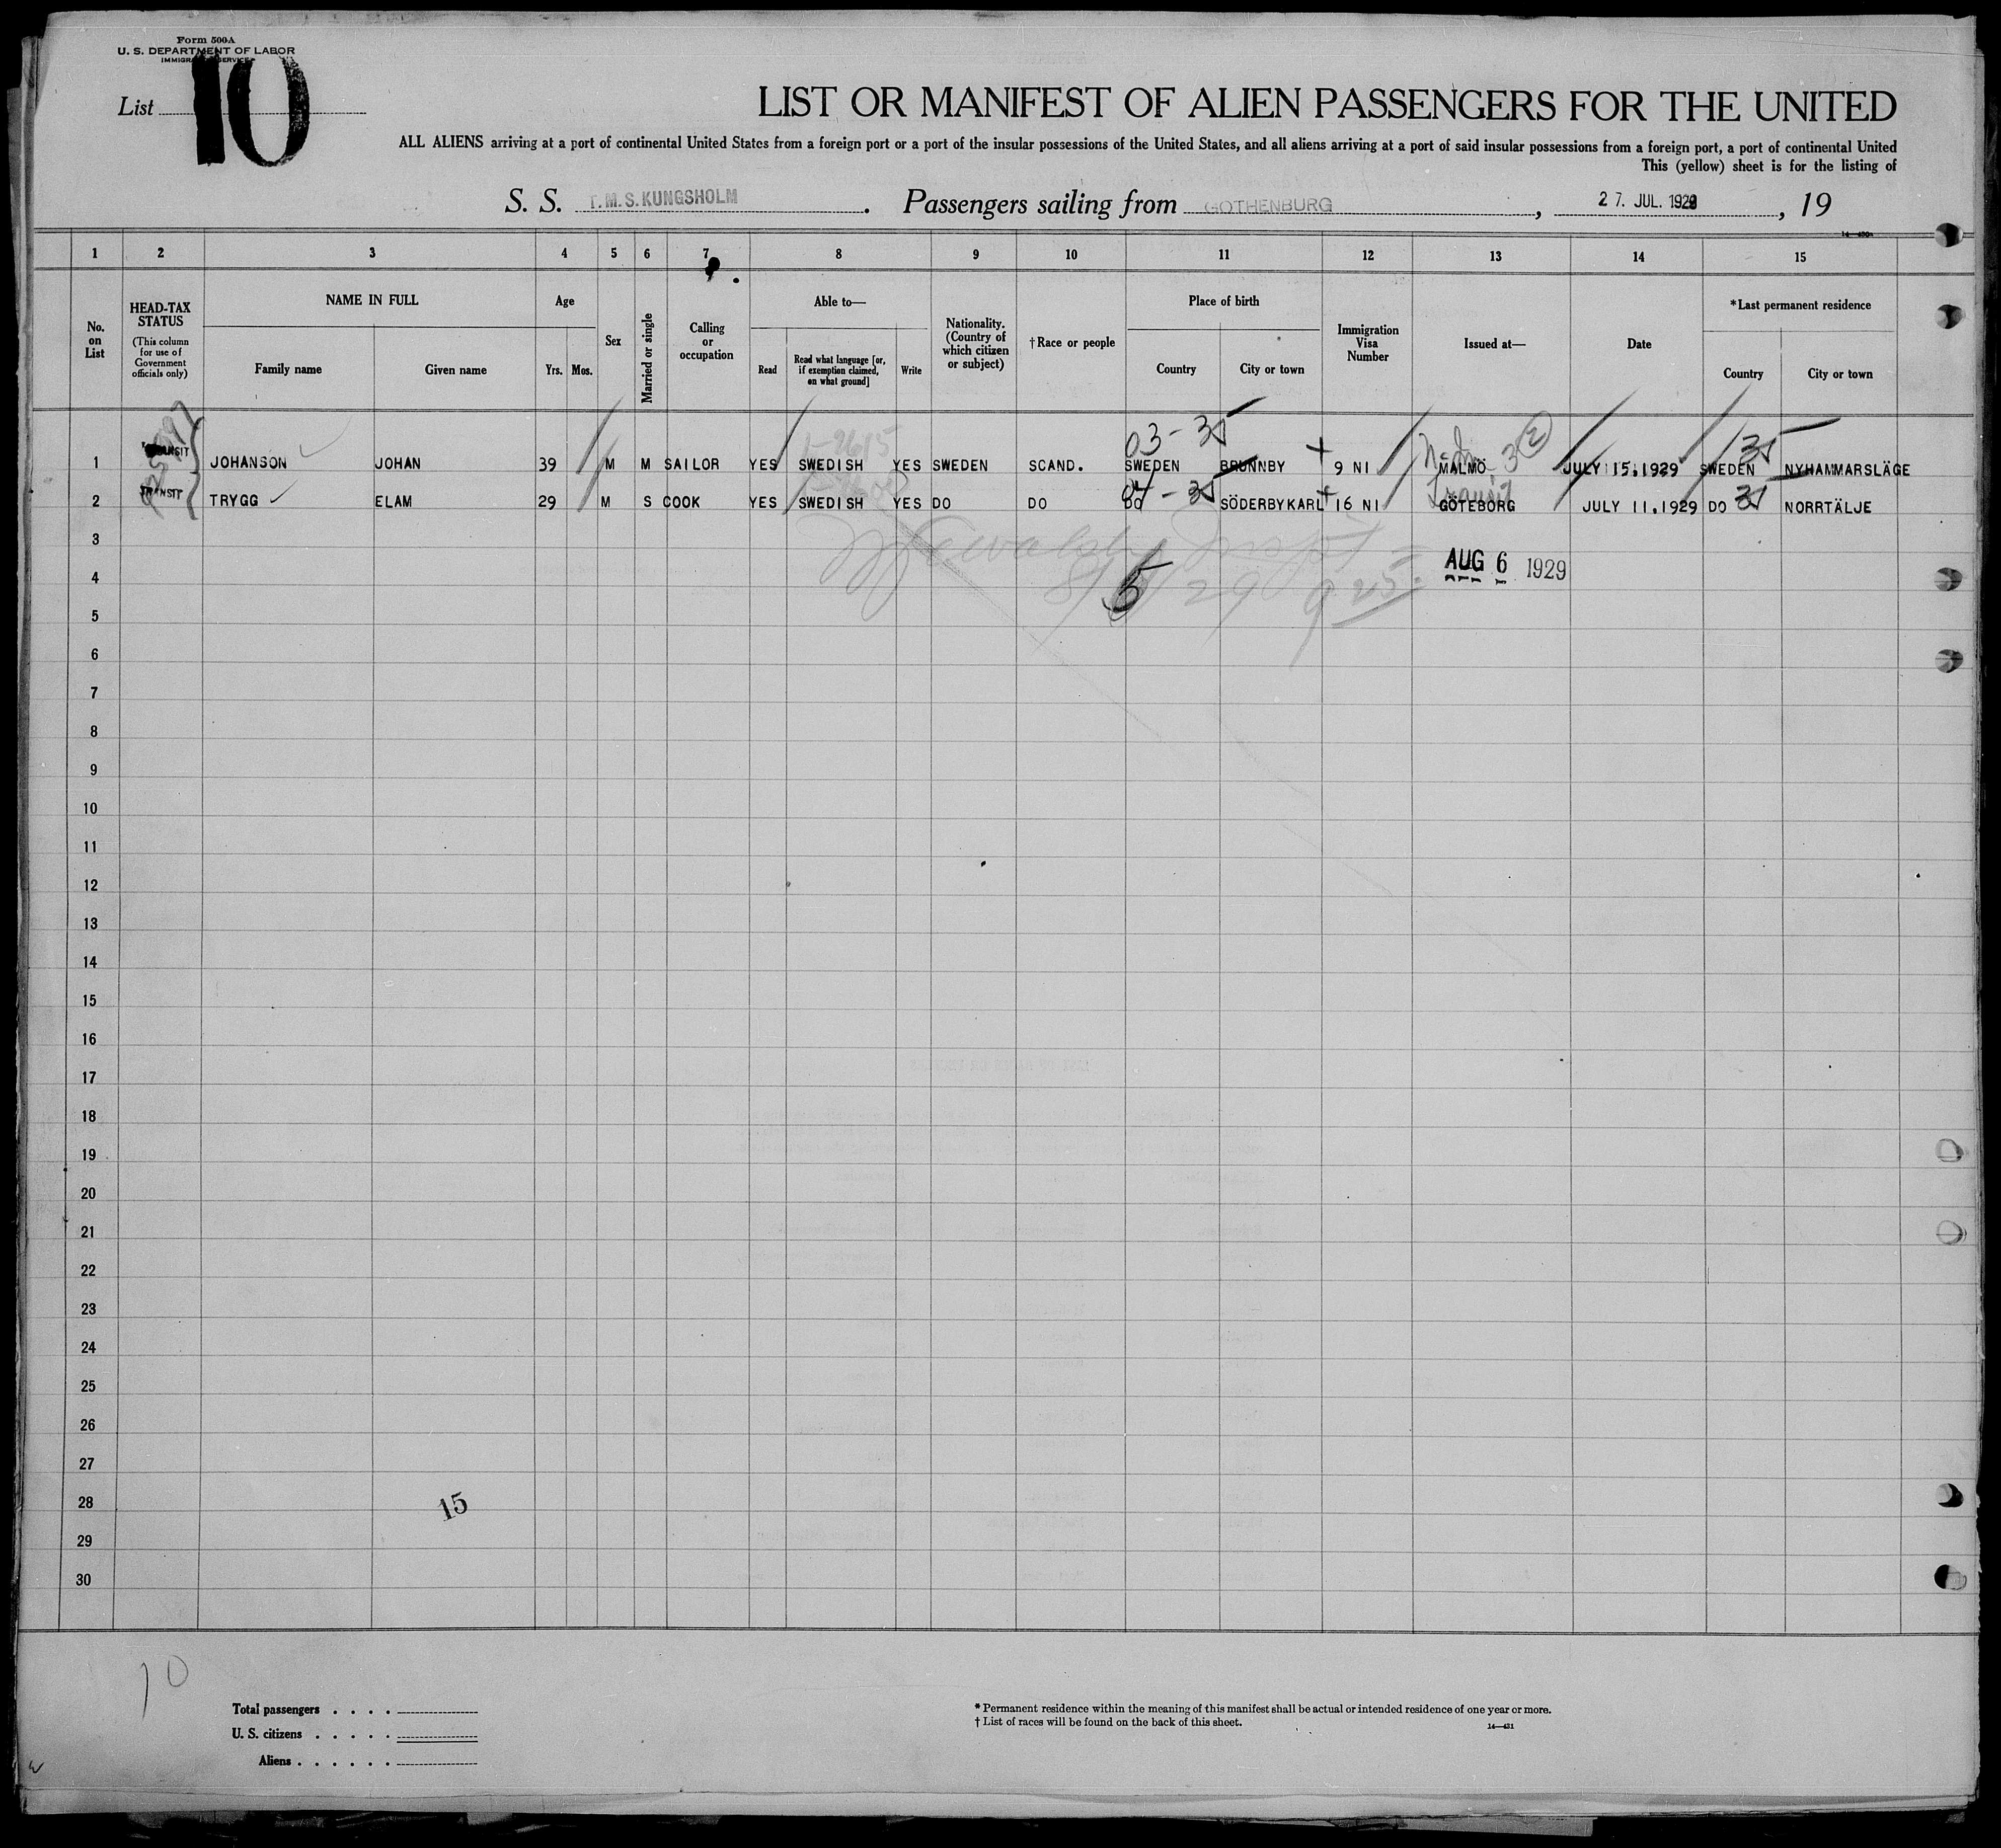 Form 500A
U. S. DEPARTMENT OF LABOR
IMMIGRATION SERVICE
List 10
LIST OR MANIFEST OF ALIEN PASSENGERS FOR THE UNITED
ALL ALIENS arriving at a port of continental United States from a foreign port or a port of the insular possessions of the United States, and all aliens arriving at a port of said insular possessions from a foreign port, a port of continental United
This (yellow) sheet is for the listing of
S. S. T.M.S.KUNGSHOLM. Passengers sailing from GOTHENBURG, 27. JUL. 1929, 19
1 2 3 4 5 6 7 8 9 10 11 12 13 14 15
No. on List
HEAD-TAX STATUS
(This column for use of Government officials only)
NAME IN FULL
Family name
Given name
Age
Yrs. Mos.
Sex
Married or single
Calling or occupation
Able to—
Read
Read what language [or, if exemption claimed, on what ground]
Write
Nationality. (Country of which citizen or subject)
†Race or people
Place of birth
Country
City or town
Immigration Visa Number
Issued at—
Date
*Last permanent residence
Country
City or town
03-35 35
1 TRANSIT JOHANSON JOHAN 39 M M SAILOR YES SWEDISH YES SWEDEN SCAND. SWEDEN BRUNNBY 9 NI MALMÖ JULY 15.1929 SWEDEN NYHAMMARSLÄGE
2 TRANSIT TRYGG ELAM 29 M S COOK YES SWEDISH YES DO DO DO SÖDERBYKARL 16 NI GÖTEBORG JULY 11.1929 DO 35 NORRTÄLJE
3
AUG 6 1929
4
5
6
7
8
9
10
11
12
13
14
15
16
17
18
19
20
21
22
23
24
25
26
27
28 15
29
30
10
Total passengers . . . .
U. S. citizens . . . . .
Aliens . . . . . .
* Permanent residence within the meaning of this manifest shall be actual or intended residence of one year or more.
† List of races will be found on the back of this sheet.
14—431